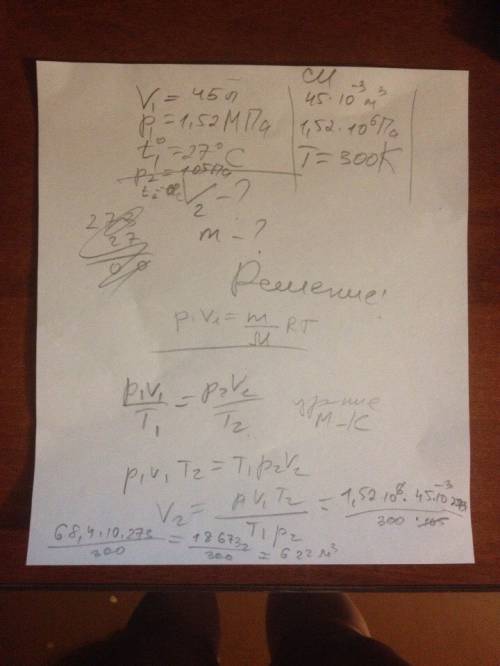 V₁ = 45 л
p₁ = 1,52 МПа
t₁° = 27°C
p₂ = 105 Па
V₂ - ?
m - ?
СИ
45·10⁻³ м³
1,52·10⁶ Па
T = 300K
Решение:
p₁V₁ = m/M RT
p₁V₁/T₁ = p₂V₂/T₂
М-К
p₁V₁T₂ = T₁p₂V₂
V₂ = pV₁T₂/T₁p₂ = 1,52·10⁶·45·10⁻³·273/300·105
68,4·10·273/300 = 186732/300 = 622 м³